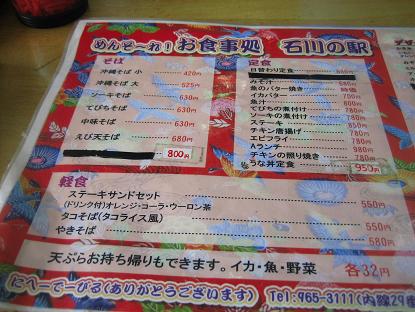 めんそ～れ！お食事処 石川の駅
そば
沖縄そば 小 420円
沖縄そば 大 525円
ソーキそば 630円
てびちそば 630円
中味そば 630円
えび天そば 680円
800円
定食
日替わり定食
みそ汁
魚のバター焼き 時価
イカバター 700円
魚汁 780円
てびちの煮付け 780円
ソーキの煮付け 780円
ステーキ 850円
チキン唐揚げ 780円
エビフライ 780円
Aランチ 980円
チキンの照り焼き 780円
うな丼定食 950円
軽食
ステーキサンドセット 550円
(ドリンク付)オレンジ・コーラ・ウーロン茶
タコそば(タコライス風) 550円
やきそば 550円
天ぷらお持ち帰りもできます。イカ・魚・野菜 各32円
にへーでーびる(ありがとうございます) Tel:965-3111(内線29